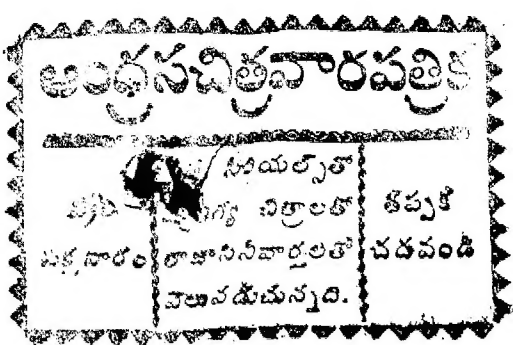 ఆంధ్రసచిత్రవారపత్రిక
సీరియల్స్‌తో
చిత్రాలతో
తాజాసినీవార్తలతో
వెలువడుచున్నది.
తప్పక
చదవండి